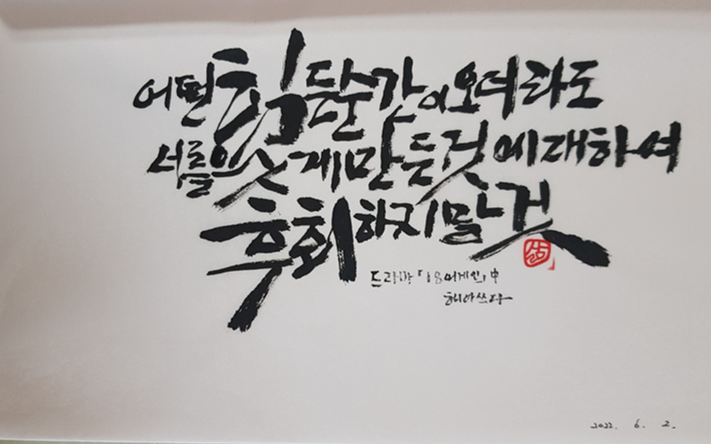 어떤 힘든 순간이 오더라도
서를 웃게 만든 것에 대하여
후회하지 말 것
드라마 「18 어게인」 中
해아쓰다
2022. 6. 2.